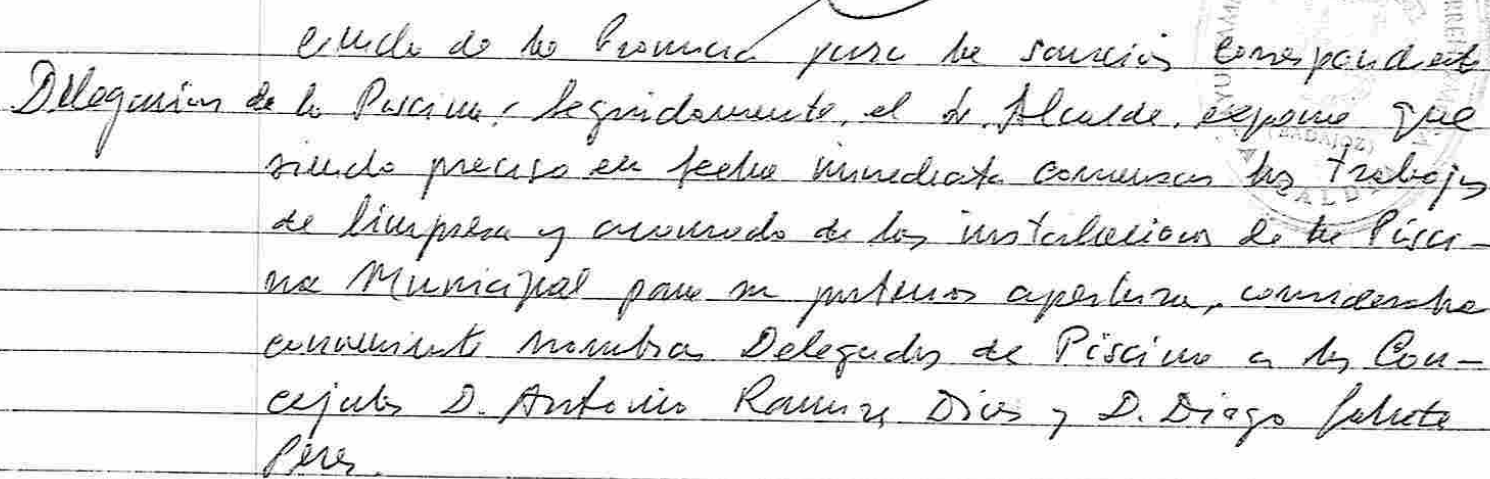 de la Provincia para la sanción correspondiente
Delegación de la Piscina: Seguidamente, el Sr. Alcalde, expone que
siendo preciso en fecha inmediata comenzar los trabajos
de limpieza y acomodo de las instalaciones de la Pisci-
na Municipal para su apertura, consideraba
conveniente nombrar Delegados de Piscina a los Con-
cejales D. Antonio Ramirez Dios y D. Diego
Perez.
(BADAJOZ)
ALCALD